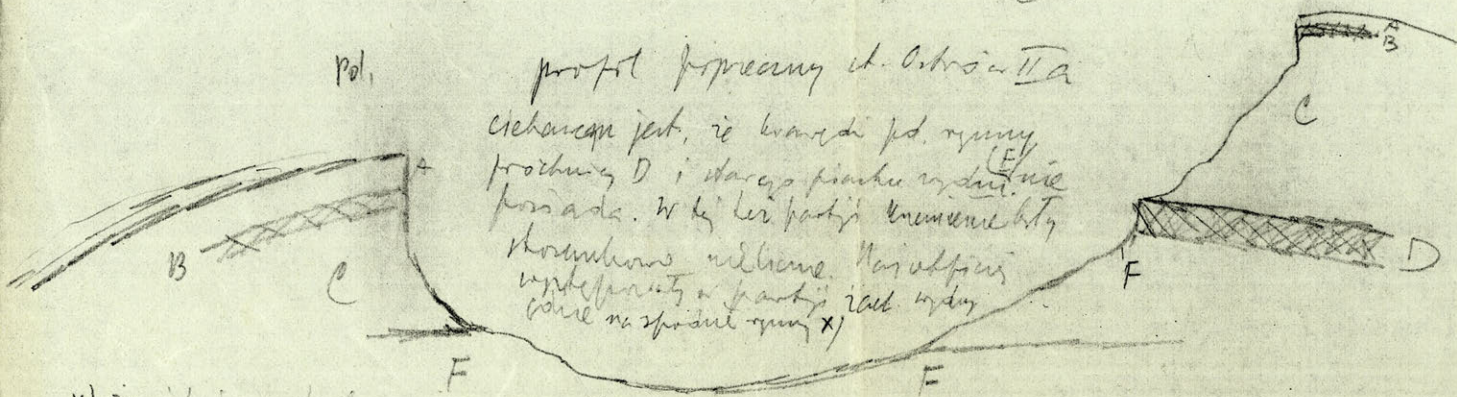 Pół.
profil poprzeczny st. Ostrów II a
A
B
ciekawem jest, że krawędź pd. rynny
C
próchnicy D i starego piasku wydm. (F) nie
A
posiada. W tej też partji krzemienie były
stosunkowo nieliczne. Najobficiej
B
D
występowały w partji zach. wydmy
C
F
gdzie na spodzie rynny x)
F
F